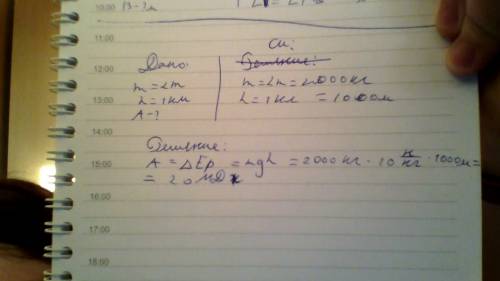 10:00
11:00
си:
12:00 Дано: Решение:
m = 2т m = 2т = 2000кг
13:00 h = 1км h = 1км = 1000м
A - ?
14:00
Решение:
15:00 A = ΔEp = mgh = 2000кг · 10 н/кг · 1000м =
= 20 МДж
16:00
17:00
18:00